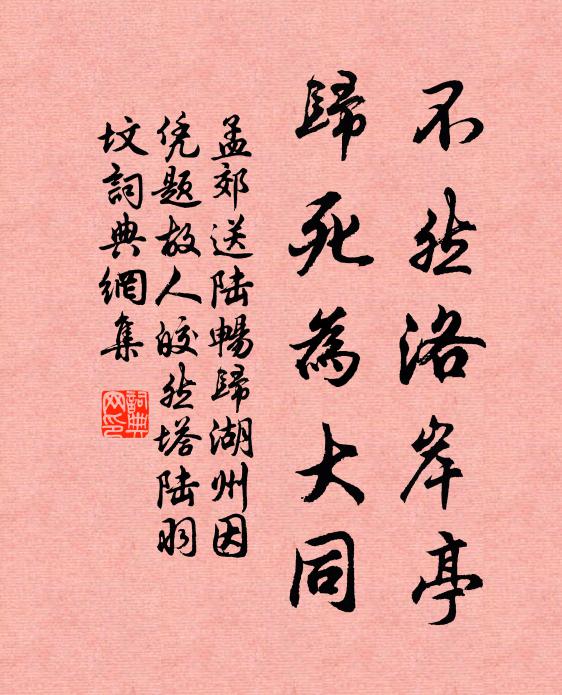 不然洛岸亭
歸死為大同
孟郊送陸暢歸湖州因
凭題故人皎然塔陸羽
坟詞典網集
詞典
网印